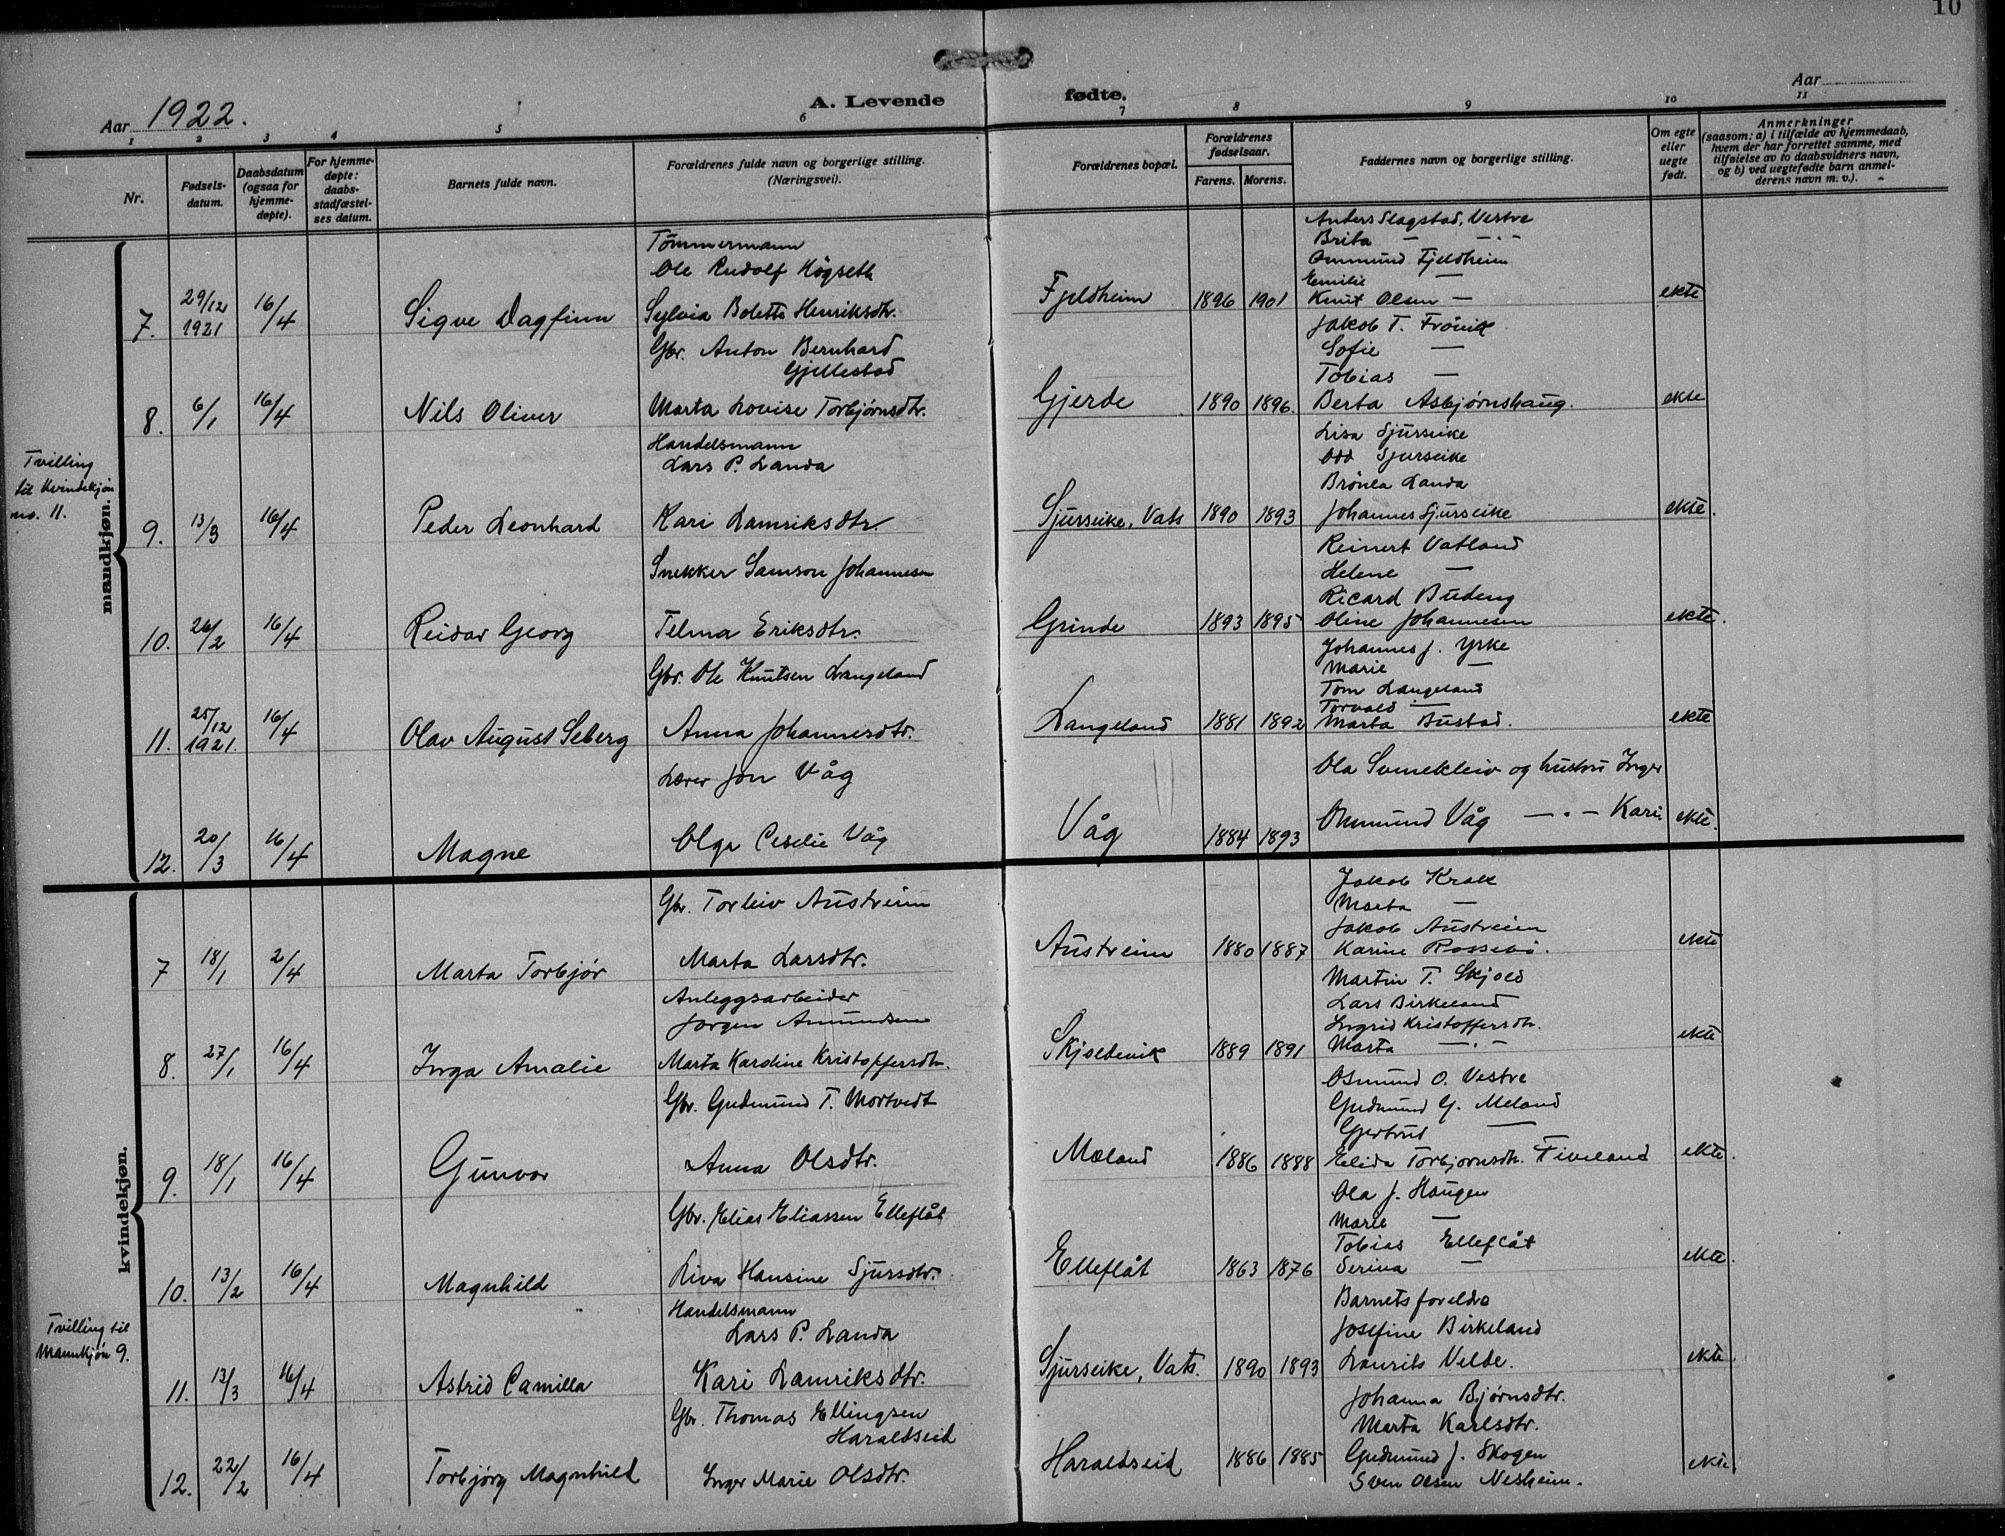 10
Aar 1922.
A. Levende fødte.
Aar
1 2 3 4 5 6 7 8 9 10 11
Nr.
Fødsels-
datum.
Daabsdatum
(ogsaa for
hjemme-
døpte).
For hjemme-
døpte:
daabs-
stadfæstel-
ses datum.
Barnets fulde navn.
Forældrenes fulde navn og borgerlige stilling.
(Næringsvei).
Forældrenes bopæl.
Forældrenes
fødselsaar.
Farens. Morens.
Faddernes navn og borgerlige stilling.
Om egte
eller
uegte
født.
Anmerkninger
(saasom: a) i tilfælde av hjemmedaab,
hvem der har forrettet samme, med
tilføielse av to daabsvidners navn,
og b) ved uegtefødte barn anmel-
derens navn m. v.).
mandkjøn.
7. 29/12 1921 16/4 Sigve Dagfinn
Tömmermann
Ole Rudolf Högseth
Sylvia Bolette Henriksdtr.
Fjeldheim 1896 1901
Anders Slagstad, Vestre
Brita — —·—
Ommund Fjeldheim
Emilie —
Knut Olsen —
ekte
8. 6/1 16/4 Nils Oliver
Gbr. Anton Bernhard
Gjillestad
Marta Lovise Torbjørnsdtr.
Gjerde 1890 1896.
Jakob T. Frövik
Sofie —
Tobias —
Berta Asbjørnshaug.
ekte
Tvilling
til Kvindekjön
no. 11.
9. 13/3 16/4 Peder Leonhard
Handelsmann
Lars P. Landa
Kari Lamriksdtr.
Sjurseike, Vats 1890 1893
Lisa Sjurseike
Odd Sjurseike
Landa
Johannes Sjurseike
ekte.
10. 26/2 16/4 Reidar Georg
Snekker Samson Johannesen
Telma Eriksdtr.
Grinde 1893 1895
Reinert Vatland
Helene —
Ricard Budeng
Oline Johannesen
ekte.
11. 25/12 1921. 16/4 Olav August Seberg
Gbr. Ole Knutsen Langeland
Anna Johannesdtr.
Langeland 1881 1892
Johannes J. Yrke
Marie —
Tom Langeland
Torvald —
Marta Bustad.
ekte
12. 20/3 16/4 Magne
Lærer Jon Våg
Olga Ceselie Våg
Våg 1884 1893
Ola Svinekleiv og hustru Inger
Ommund Våg —·— Kari.
ekte.
kvindekjøn.
7 18/1 2/4 Marta Torbjør
Gbr. Torleiv Austreim
Marta Larsdtr.
Austreim 1880 1887
Jakob Krak
Marta —
Jakob Austreim
Karine Rossebö.
ekte
8. 27/1 16/4 Inga Amalie
Anleggsarbeider
Jørgen Amundsen
Marta Kardine Kristoffersdtr.
Skjoldevik 1889 1891
Martin T. Skjold
Lars Birkeland
Ingrid Kristoffersdtr.
Marta —·—
ekte
9. 18/1 16/4 Gunvor
Gbr. Gudmund T. Mortvedt
Anna Olsdtr.
Mæland 1886 1888
Osmund O. Vestre
Gudmund G. Meland
Gjertrud —
Elida Torbjørnsdtr. Fiveland
ekte.
10. 13/2 16/4 Magnhild
Gbr. Elias Eliassen Elleflåt
Liva Hansine Sjursdtr.
Elleflåt 1863 1876
Ola J. Haugen
Marie —
Tobias Elleflåt
Serina —
ekte.
Tvilling til
Mannkjön 9.
11. 13/3 16/4 Astrid Camilla
Handelsmann
Lars P. Landa
Kari Lamriksdtr.
Sjurseike, Vats. 1890 1893
Barnets foreldre
Josefine Birkeland
Laurits Velde.
ekte.
12. 22/2 16/4 Torbjörg Magnhild
Gbr. Thomas Ellingsen
Haraldseid
Inger Marie Olsdtr.
Haraldseid 1886 1885
Johanna Bjørnsdtr.
Marta Karlsdtr.
Gudmund J. Skogen
Sven Olsen Nesheim.
ekte